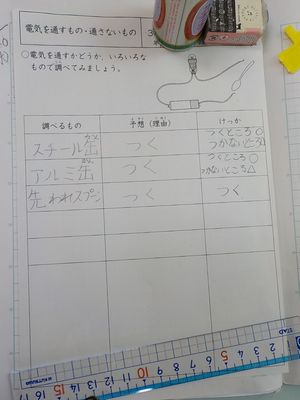 電気を通すもの・通さないもの 3
○電気を通すかどうか、いろいろな
もので調べてみましょう。
調べるもの 予想(理由) けっか
スチール缶 つく つくところ○
つかないところ△
アルミ缶 つく つくところ○
つかないところ△
先われスプーン つく つく
15 10 5